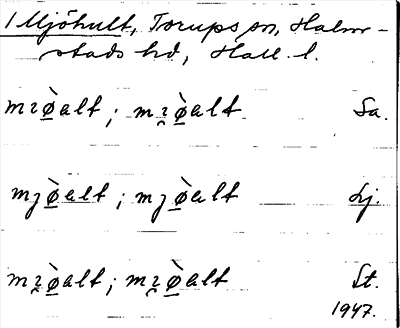 1 Mjöhult, Torups sn, Halm-
stads hd, Hall. l.
mɿø̲̀alt ; mɿ̯ø̲̀alt Sa.
mȷø̲̀alt ; mȷø̲̀alt Lj.
mɿ̯ø̲̀alt ; mɿ̯ø̲̀alt St.
1947.